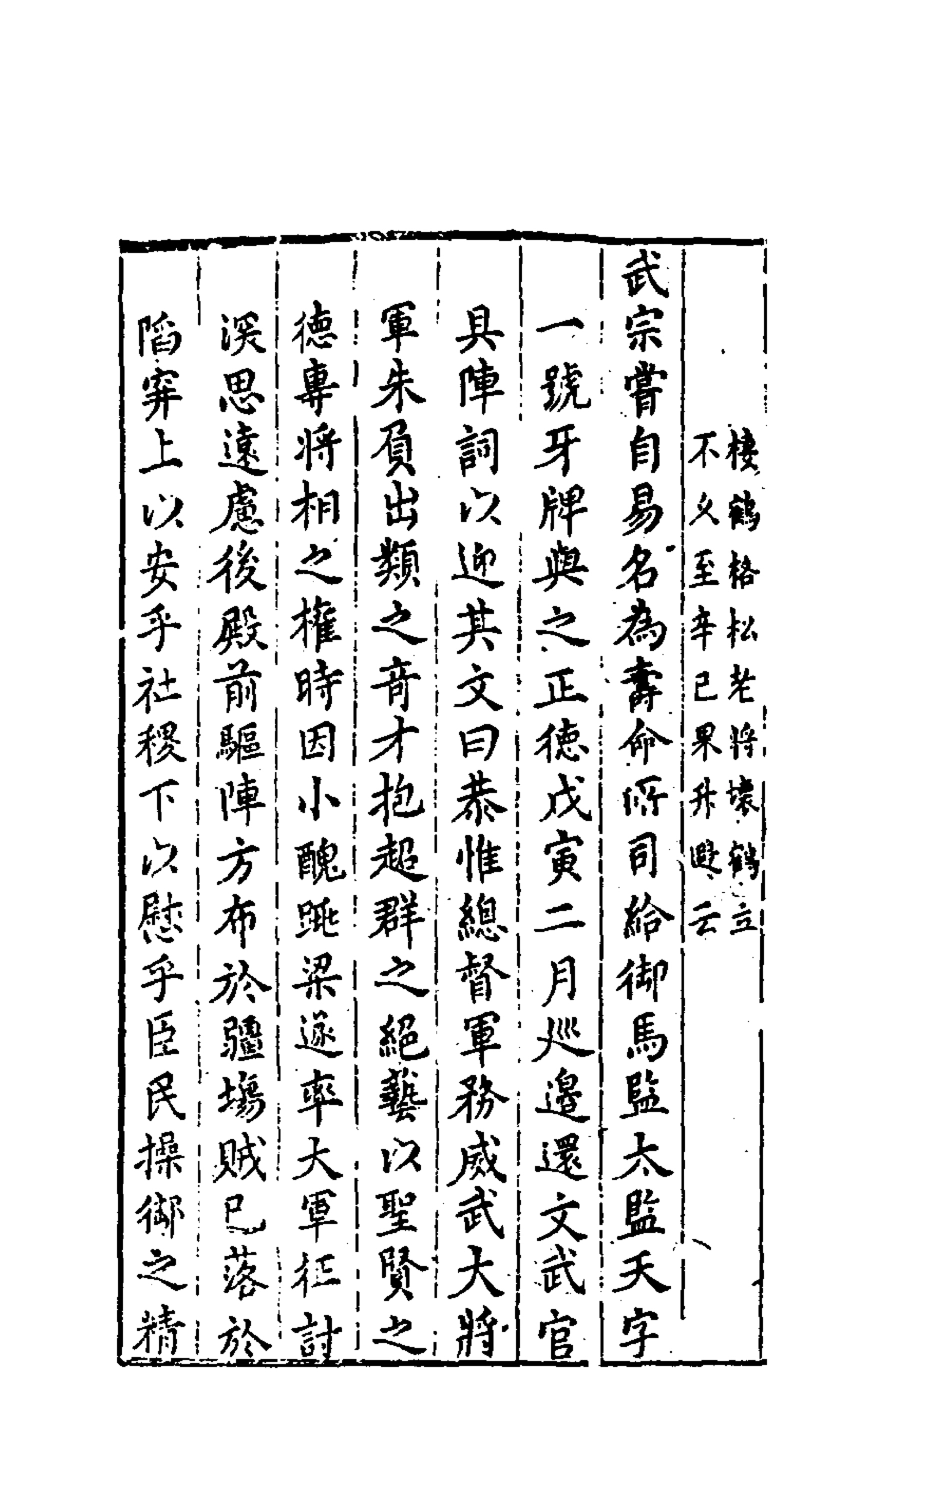 棲鶴格松老將壞鶴立
不久至辛已果升遐云
武宗嘗自易名為壽命所司給御馬監太監天字
一號牙牌與之正德戊寅二月巡邉還文武官
具陣詞以迎其文曰恭惟總督軍務威武大將
軍朱負出類之竒才抱超群之絕藝以聖賢之
德專將相之權時因小醜跳梁遂率大軍征討
深思遠慮後殿前驅陣方布於疆場賊已落於
陷穽上以安乎社稷下以慰乎臣民操御之精